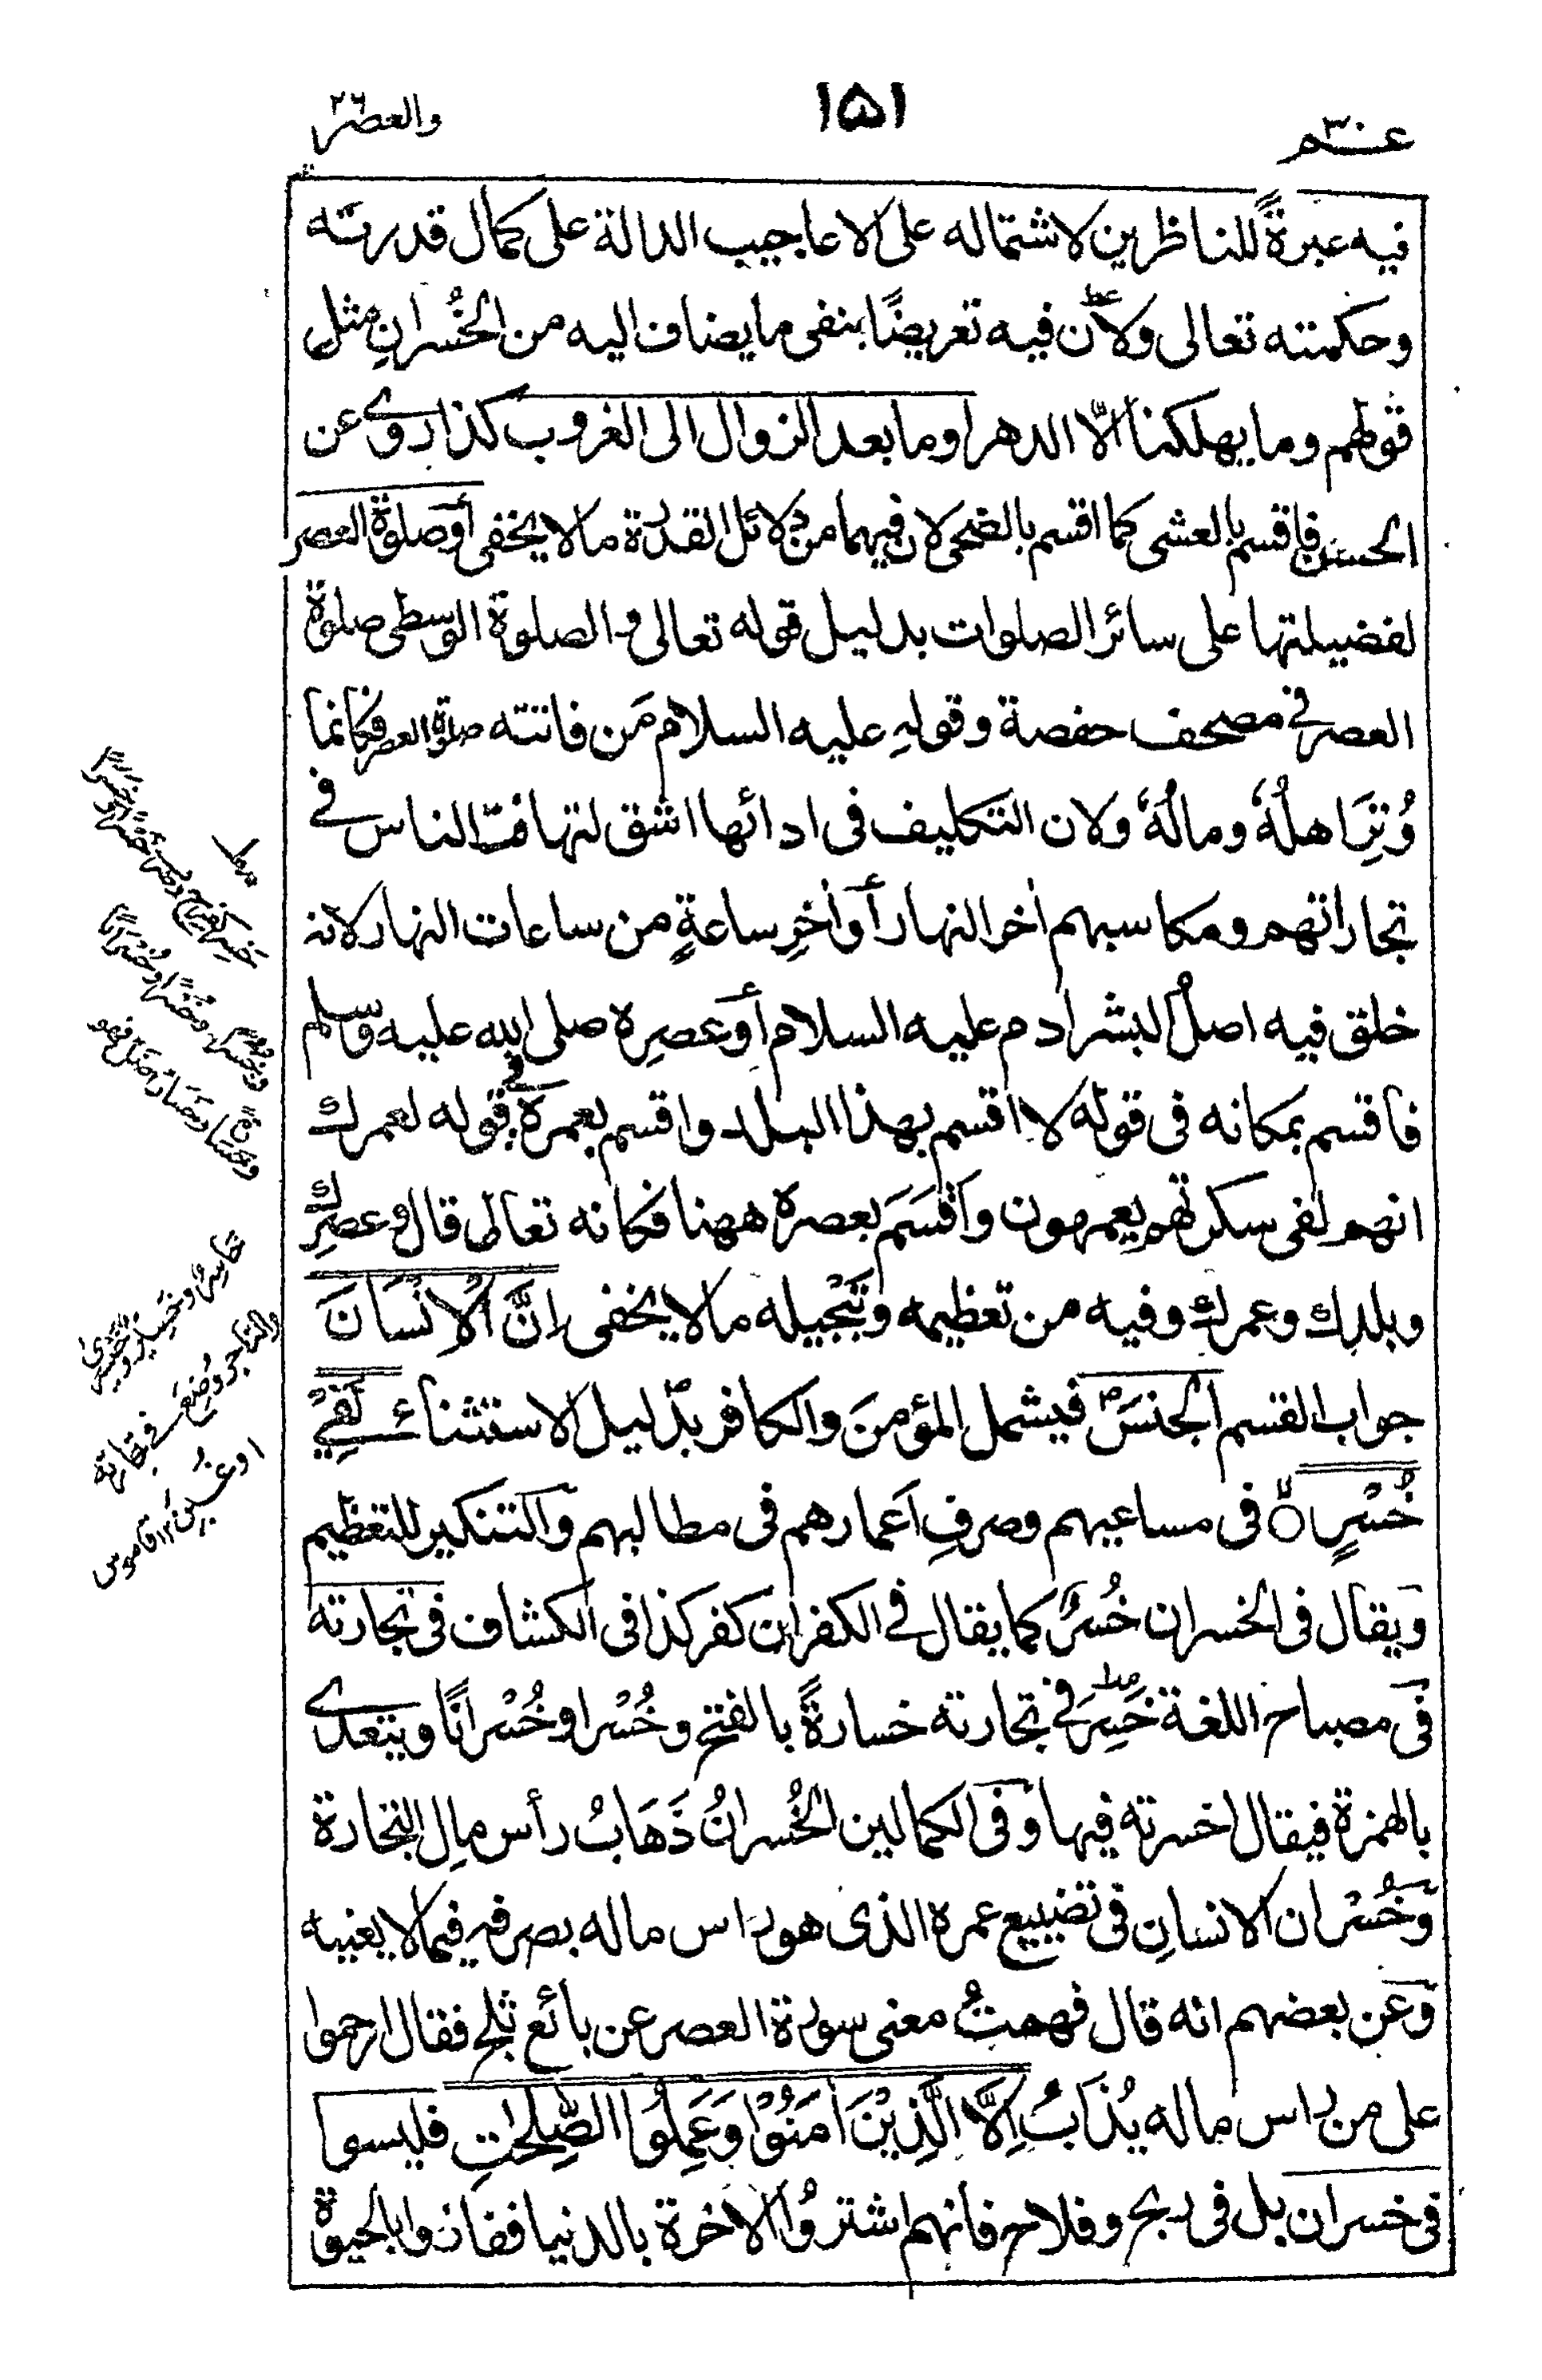 عــم ٣٠
١٥١
والعصر ٢٦
فيه عبرةً للناظرين لاشتماله على الاعاجيب الدالة على كمال قدرته
وحكمته تعالى ولأن فيه تعريضًا بنفى ما يضاف اليه من الخُسرانِ مثل
قولهم وما يهلكنا الّا الدهر او ما بعد الزوال الى الغروب كذا روى عن
الحسن فاقسم بالعشى كما اقسم بالضحى لان فيهما من دلائل القدرة ما لا يخفى أو صلوة العصر
لفضيلتها على سائر الصلوات بدليل قوله تعالى و الصلوة الوسطى صلوة
العصر فى مصحف حفصة وقولهِ عليه السلام مَن فاتته صلوة العصر فكانما
وُتِرَ اهلُهٗ ومالُهٗ ولان التكليف فى ادائها اشق لتهافت الناس فى
تجاراتهم ومكاسبهم اٰخر النهار أو اٰخرِ ساعةٍ من ساعات النهار لانه
خلق فيه اصلُ البشر اٰدم عليه السلام أو عصرِه صلى الله عليه وسلم
فاقسم بمكانه فى قوله لا اقسم بهذا البلد واقسم بعمره فى قوله لعمرك
انهم لفى سكرتهم يعمهون واَقسَمَ بعصره ههنا فكانه تعالى قال وعصرِك
وبلدِك وعمرك وفيه من تعظيمه وتَبْجيله ما لا يخفى اِنَّ الْاِنْسَانَ
جواب القسم الجنسَ فيشمل المؤمنَ والكافر بدليل الاستثناء لَفِيْ
خُسْرٍۙ فى مساعيهم وصرفِ اَعمارهم فى مطالبهم والتنكير للتعظيم
ويقال فى الخسران خُسرٌ كما يقال فى الكفران كفر كذا فى الكشاف فى تجارته
فى مصباح اللغة خَسِرَ فى تجارته خسارةً بالفتح وخُسْرا وخُسْرانًا ويتعدى
بالهمزة فيقال اخسرته فيها وفى الكمالين الخُسرانُ ذَهَابُ رأس مالِ التجارة
وخُسْران الانسانِ فى تضييع عمره الذى هو راس ماله بصرفهِ فيما لا يغنيه
وعن بعضهم انه قال فهمتُ معنى سورة العصر عن بائع ثلج فقال ارحموا
على من راس ماله يُذَابُ اِلَّا الَّذِيْنَ اٰمَنُوْا وَعَمِلُوا الصّٰلِحٰتِ فليسوا
فى خسران بل فى ربح وفلاح فانهم اشتروُا الاٰخرة بالدنيا ففازوا بالحيوة
والتاجر وُضِعَ فى تجارته
او غُبِنَ ١٢ قاموس